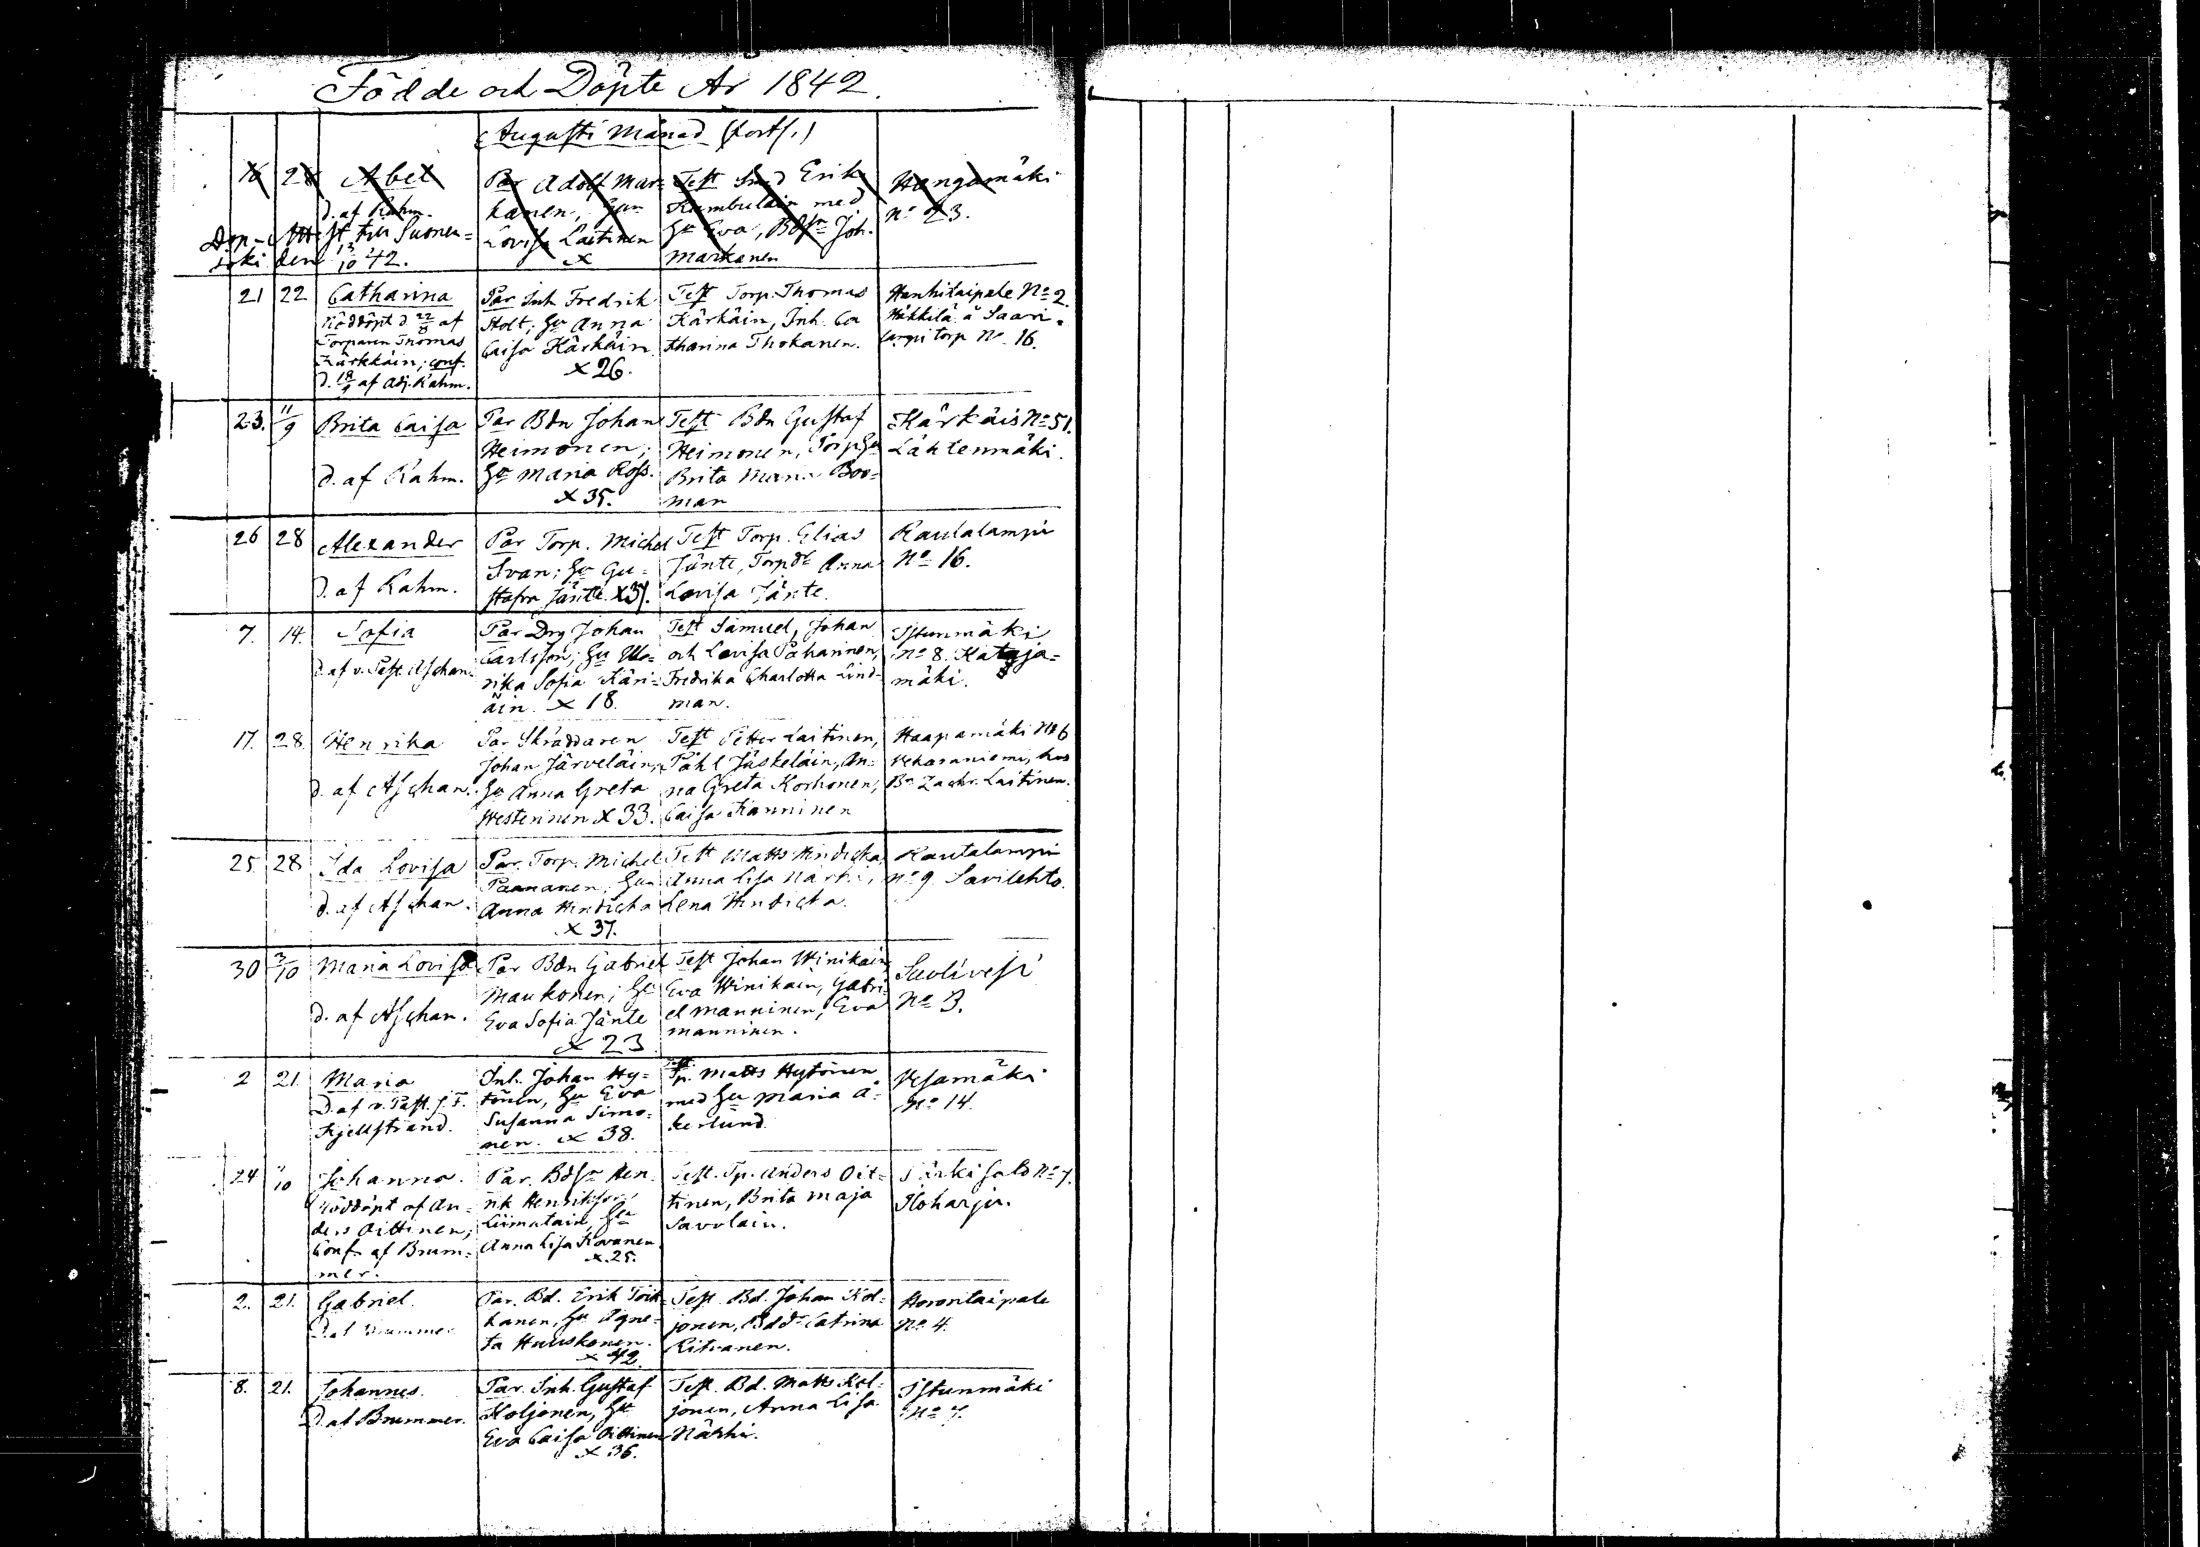 Födde och Döpte År 1842.
Augusti Månad (forts.)
18 28 Abel
d. af Rahm.
Dop-Attest till Suonen=
joki den 13/10 42.
Par Adolf Mar=
kanen, Hu
Lovisa Laitinen
x
Test Smed Erik
Kumbulain med
Hu Eva, Bdsn Joh.
Markanen
Hangamäki
No 23.
21 22 Catharina
Nöddöpt d. 22/8 af
Torparen Thomas
Kärkkäin; conf.
d. 18/9 af Adj. Rahm.
Par Inh Fredrik
Holt; Hu Anna
Caisa Kärkäin
x 26.
Test Torp. Thomas
Kärkäin, Inh. Ca
tharina Thokanen.
Hanhitaipale No 2.
Häkkilä å Saari=
lampi torp No 16.
23. 11/9 Brita Caisa
d. af Rahm.
Par Bdn Johan
Heimonen;
Hu Maria Ross.
x 35.
Test Bdn Gustaf
Heimonen, Torp Hu
Brita Maria Boo=
man
Kärkäis No 51.
Lähtenmäki.
26 28 Alexander
d. af Rahm.
Par Torp. Michel
Svan; Hu Gu=
stafva Jänte. x 31.
Test Torp. Elias
Jänte, Torpdr Anna
Lovisa Jänte.
Rautalampi
No 16.
7. 14. Sofia
d. af v. Past. Aschan.
Par Drg Johan
Carlsson; Hu Ulo=
rika Sofia Käri=
äin. x 18.
Test Samuel, Johan
och Lovisa Pahannen,
Fredrika Charlotta Lind=
man.
Istunmäki
No 8. Kataja=
mäki.
17. 28. Henrika
d. af Aschan.
Par Skräddaren
Johan Järveläin,
Hu Anna Greta
Westerinen x 33.
Test Petter Laitinen,
Påhl Jäskeläin, An=
na Greta Korhonen,
Caisa Kanninen
Haapamäki No 6
Vehasaniemi, hos
Bn Zachr. Laitinen.
25. 28 Ida Lovisa
d. af Aschan.
Par. Torp. Michel
Paananen; Hu
Anna Hindicka
x 37.
Test Matts Hindicka,
Anna Lisa Närhi,
Lena Hindicka.
Rautalampi
No 9. Savilehto.
30 3/10 Maria Lovisa
d. af Aschan.
Par Bdn Gabriel
Maukonen; Hu
Eva Sofia Jänte
x 23
Test Johan Winikain,
Eva Winikain, Gabri=
el Manninen, Eva
Manninen.
Sulivesi
No 3.
2 21. Maria
D. af v. Past. J. F.
Kjellstrand.
Inh. Johan Hy=
tönen, Hu Eva
Susanna Simo=
nen. x 38.
Test Tp. Matts Hytönen
med Hu Maria Å=
kerlund.
Vesamäki
No 14.
24 11/10 Johanna.
Nöddöpt af An=
ders Oittinen;
Conf. af Brum=
mer.
Par. Bdsn Hen
rik Henriksson
Liimatain, Hu
Anna Lisa Kovanen
x 25.
Test. Tp. Anders Oit=
tinen, Brita Maja
Savolain.
Särkisalo No 7.
Iloharju.
2. 21. Gabriel.
D. af Brummer.
Par. Bd. Erik Toik=
kanen, Hu Agne=
ta Huuskonen.
x 42
Test. Bd. Johan Kol=
jonen, Bddr Catrina
Ritvanen.
Horontaipale
No 4.
8. 21. Johannes.
D. af Brummer.
Par. Inh. Gustaf
Koljonen, Hu
Eva Caisa Oittinen
x 36.
Test. Bd. Matts Kol=
jonen, Anna Lisa
Närhi.
Istunmäki
No 7.